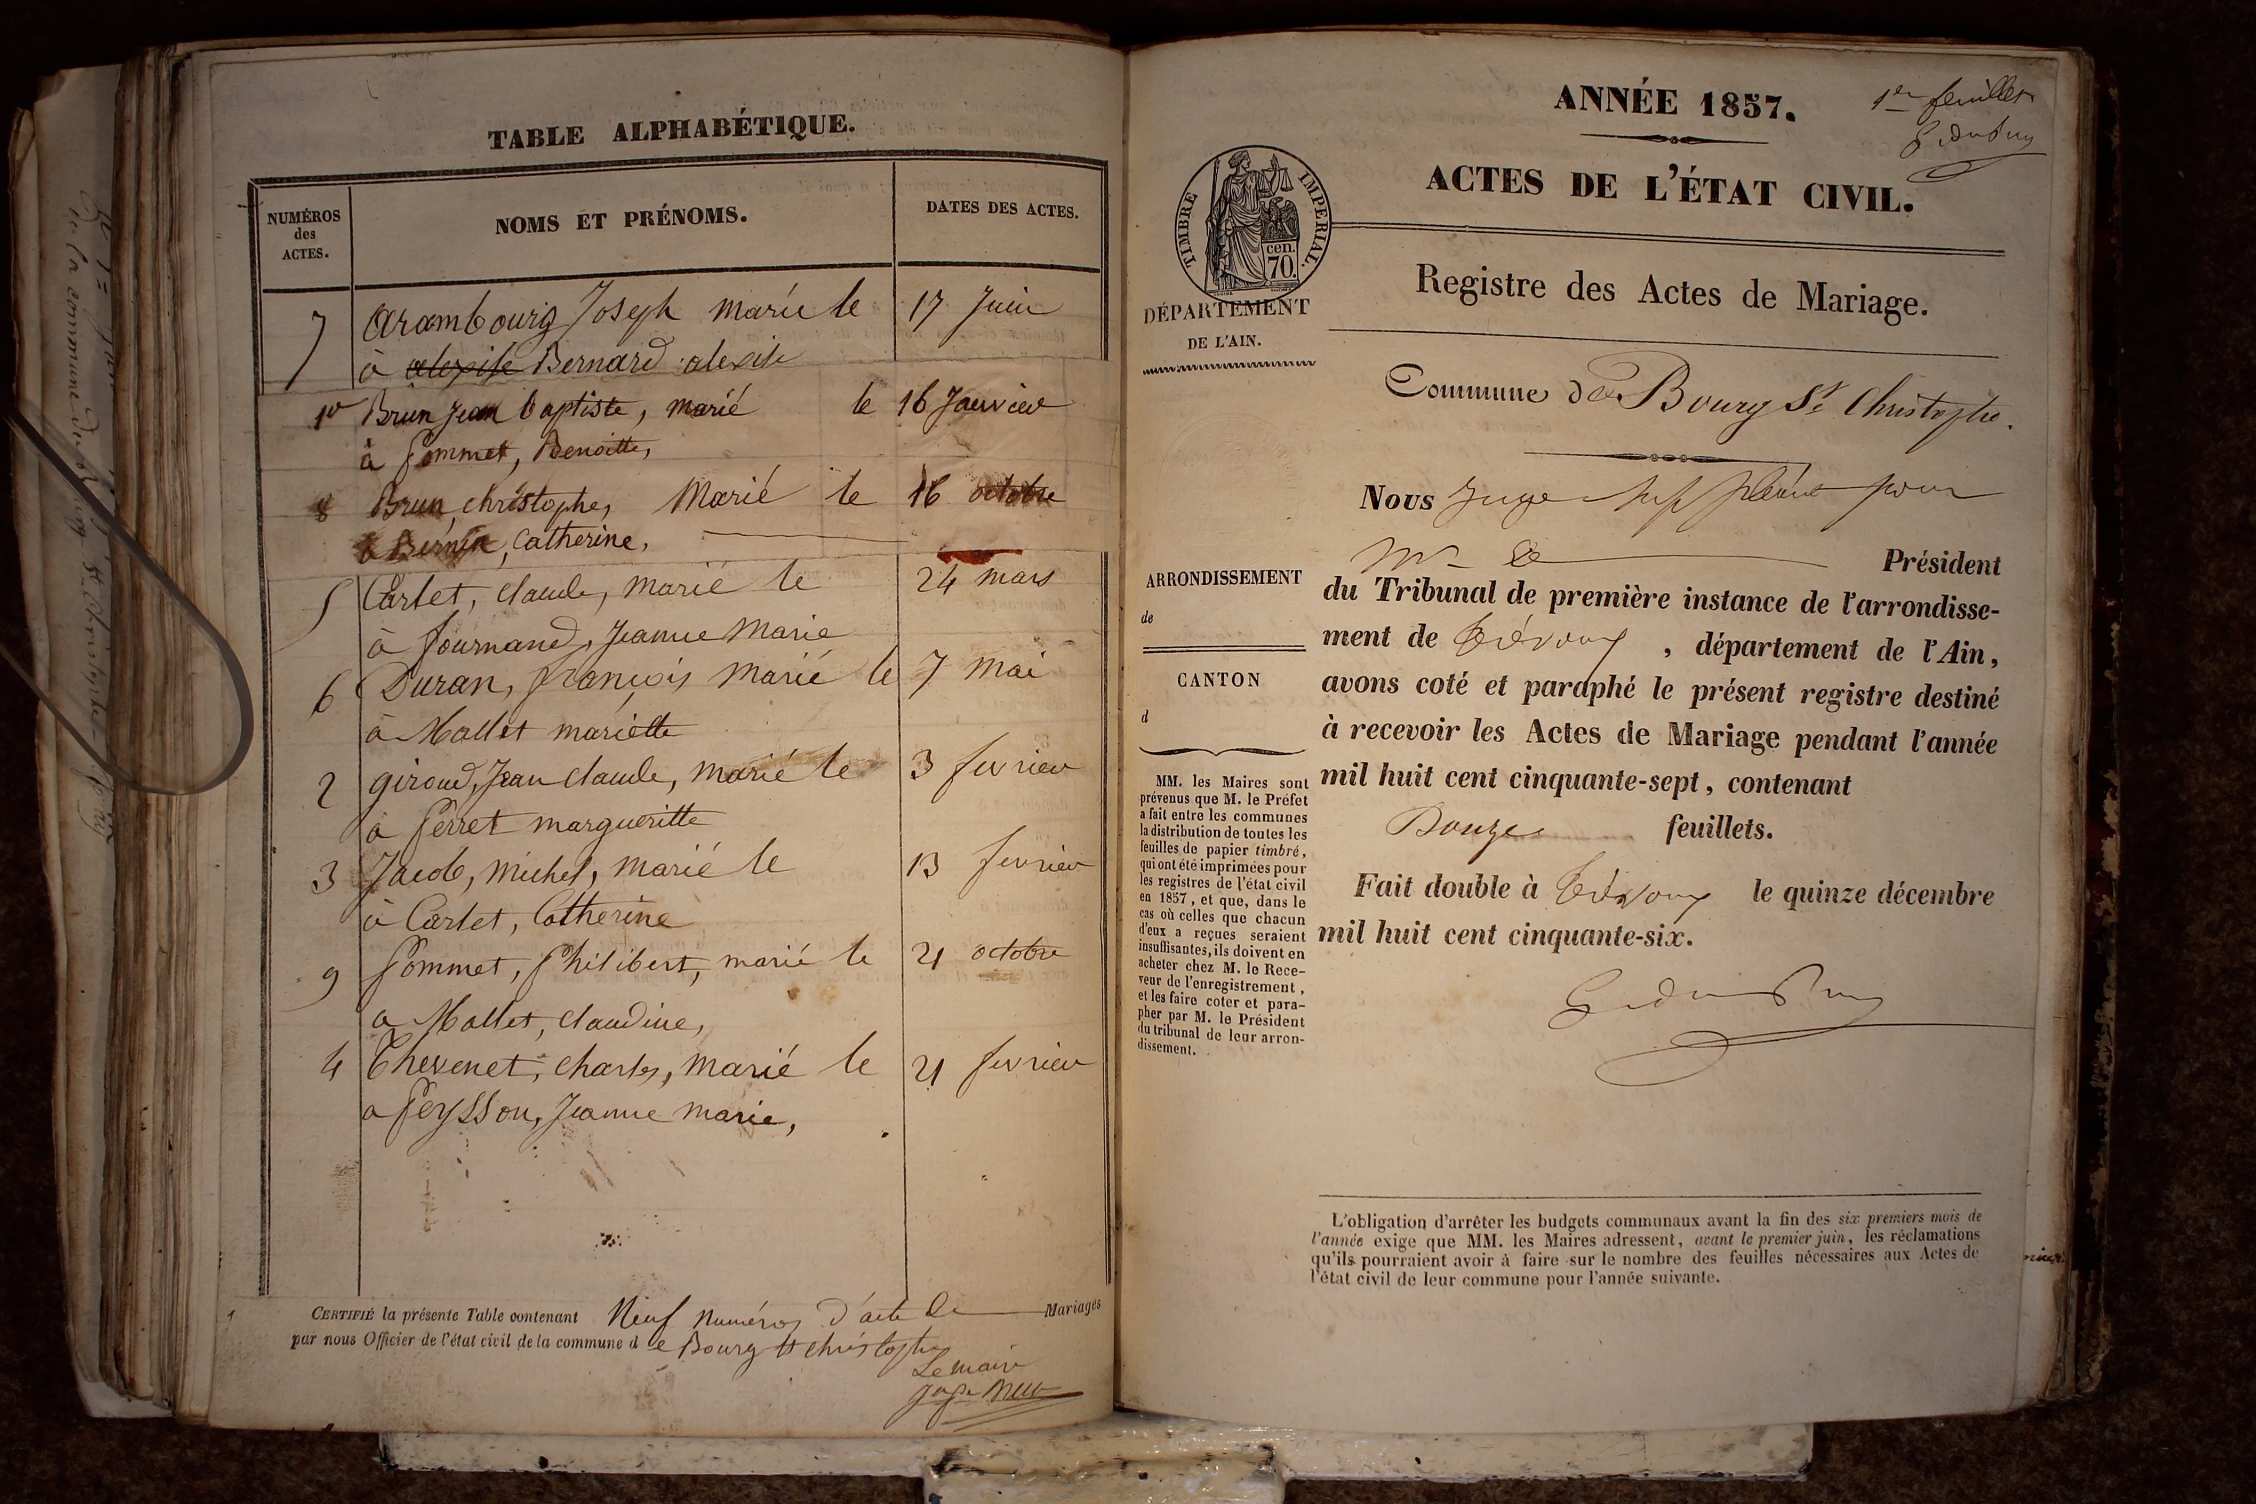 TABLE ALPHABÉTIQUE.
NUMÉROS
des
ACTES.
NOMS ET PRÉNOMS.
DATES DES ACTES.
7 Arambourg Joseph marié le 17 Juin
à alexise Bernard alexise
1er Brun Jean baptiste, marié le 16 Janvier
à Pommet, Benoitte,
8 Brun, christophe, Marié le 16 octobre
à Bernin, Catherine,
5 Carlet, claude, marié le 24 mars
à fournand, Jeanne Marie
6 Duran, françois marié le 7 mai
à Mallet mariette
2 giroud, Jean claude, marié le 3 fevrier
à Perret margueritte
3 Jacob, michel, marié le 13 fevrier
à Carlet, Catherine
9 Pommet, Philibert, marié le 21 octobre
a Mallet, claudine,
4 Thevenet, charles, marié le 21 fevrier
a Peysson, Jeanne marie,
CERTIFIÉ la présente Table contenant Neuf numéros d'acte de Mariages
par nous Officier de l'état civil de la commune de Bourg St christophe
Le maire
ANNÉE 1857.
1er feuillet
ACTES DE L'ÉTAT CIVIL.
TIMBRE IMPERIAL.
cen.
70.
DÉPARTEMENT
DE L'AIN.
Registre des Actes de Mariage.
Commune de Bourg St Christophe.
Nous Juge suppléant pour
Mr le Président
du Tribunal de première instance de l'arrondisse-
ment de Trévoux, département de l'Ain,
avons coté et paraphé le présent registre destiné
à recevoir les Actes de Mariage pendant l'année
mil huit cent cinquante-sept, contenant
Douze feuillets.
Fait double à Trévoux le quinze décembre
mil huit cent cinquante-six.
ARRONDISSEMENT
de
CANTON
d
MM. les Maires sont
prévenus que M. le Préfet
a fait entre les communes
la distribution de toutes les
feuilles de papier timbré,
qui ont été imprimées pour
les registres de l'état civil
en 1857, et que, dans le
cas où celles que chacun
d'eux a reçues seraient
insuffisantes, ils doivent en
acheter chez M. le Rece-
veur de l'enregistrement,
et les faire coter et para-
pher par M. le Président
du tribunal de leur arron-
dissement.
L'obligation d'arrêter les budgets communaux avant la fin des six premiers mois de
l'année exige que MM. les Maires adressent, avant le premier juin, les réclamations
qu'ils pourraient avoir à faire sur le nombre des feuilles nécessaires aux Actes de
l'état civil de leur commune pour l'année suivante.